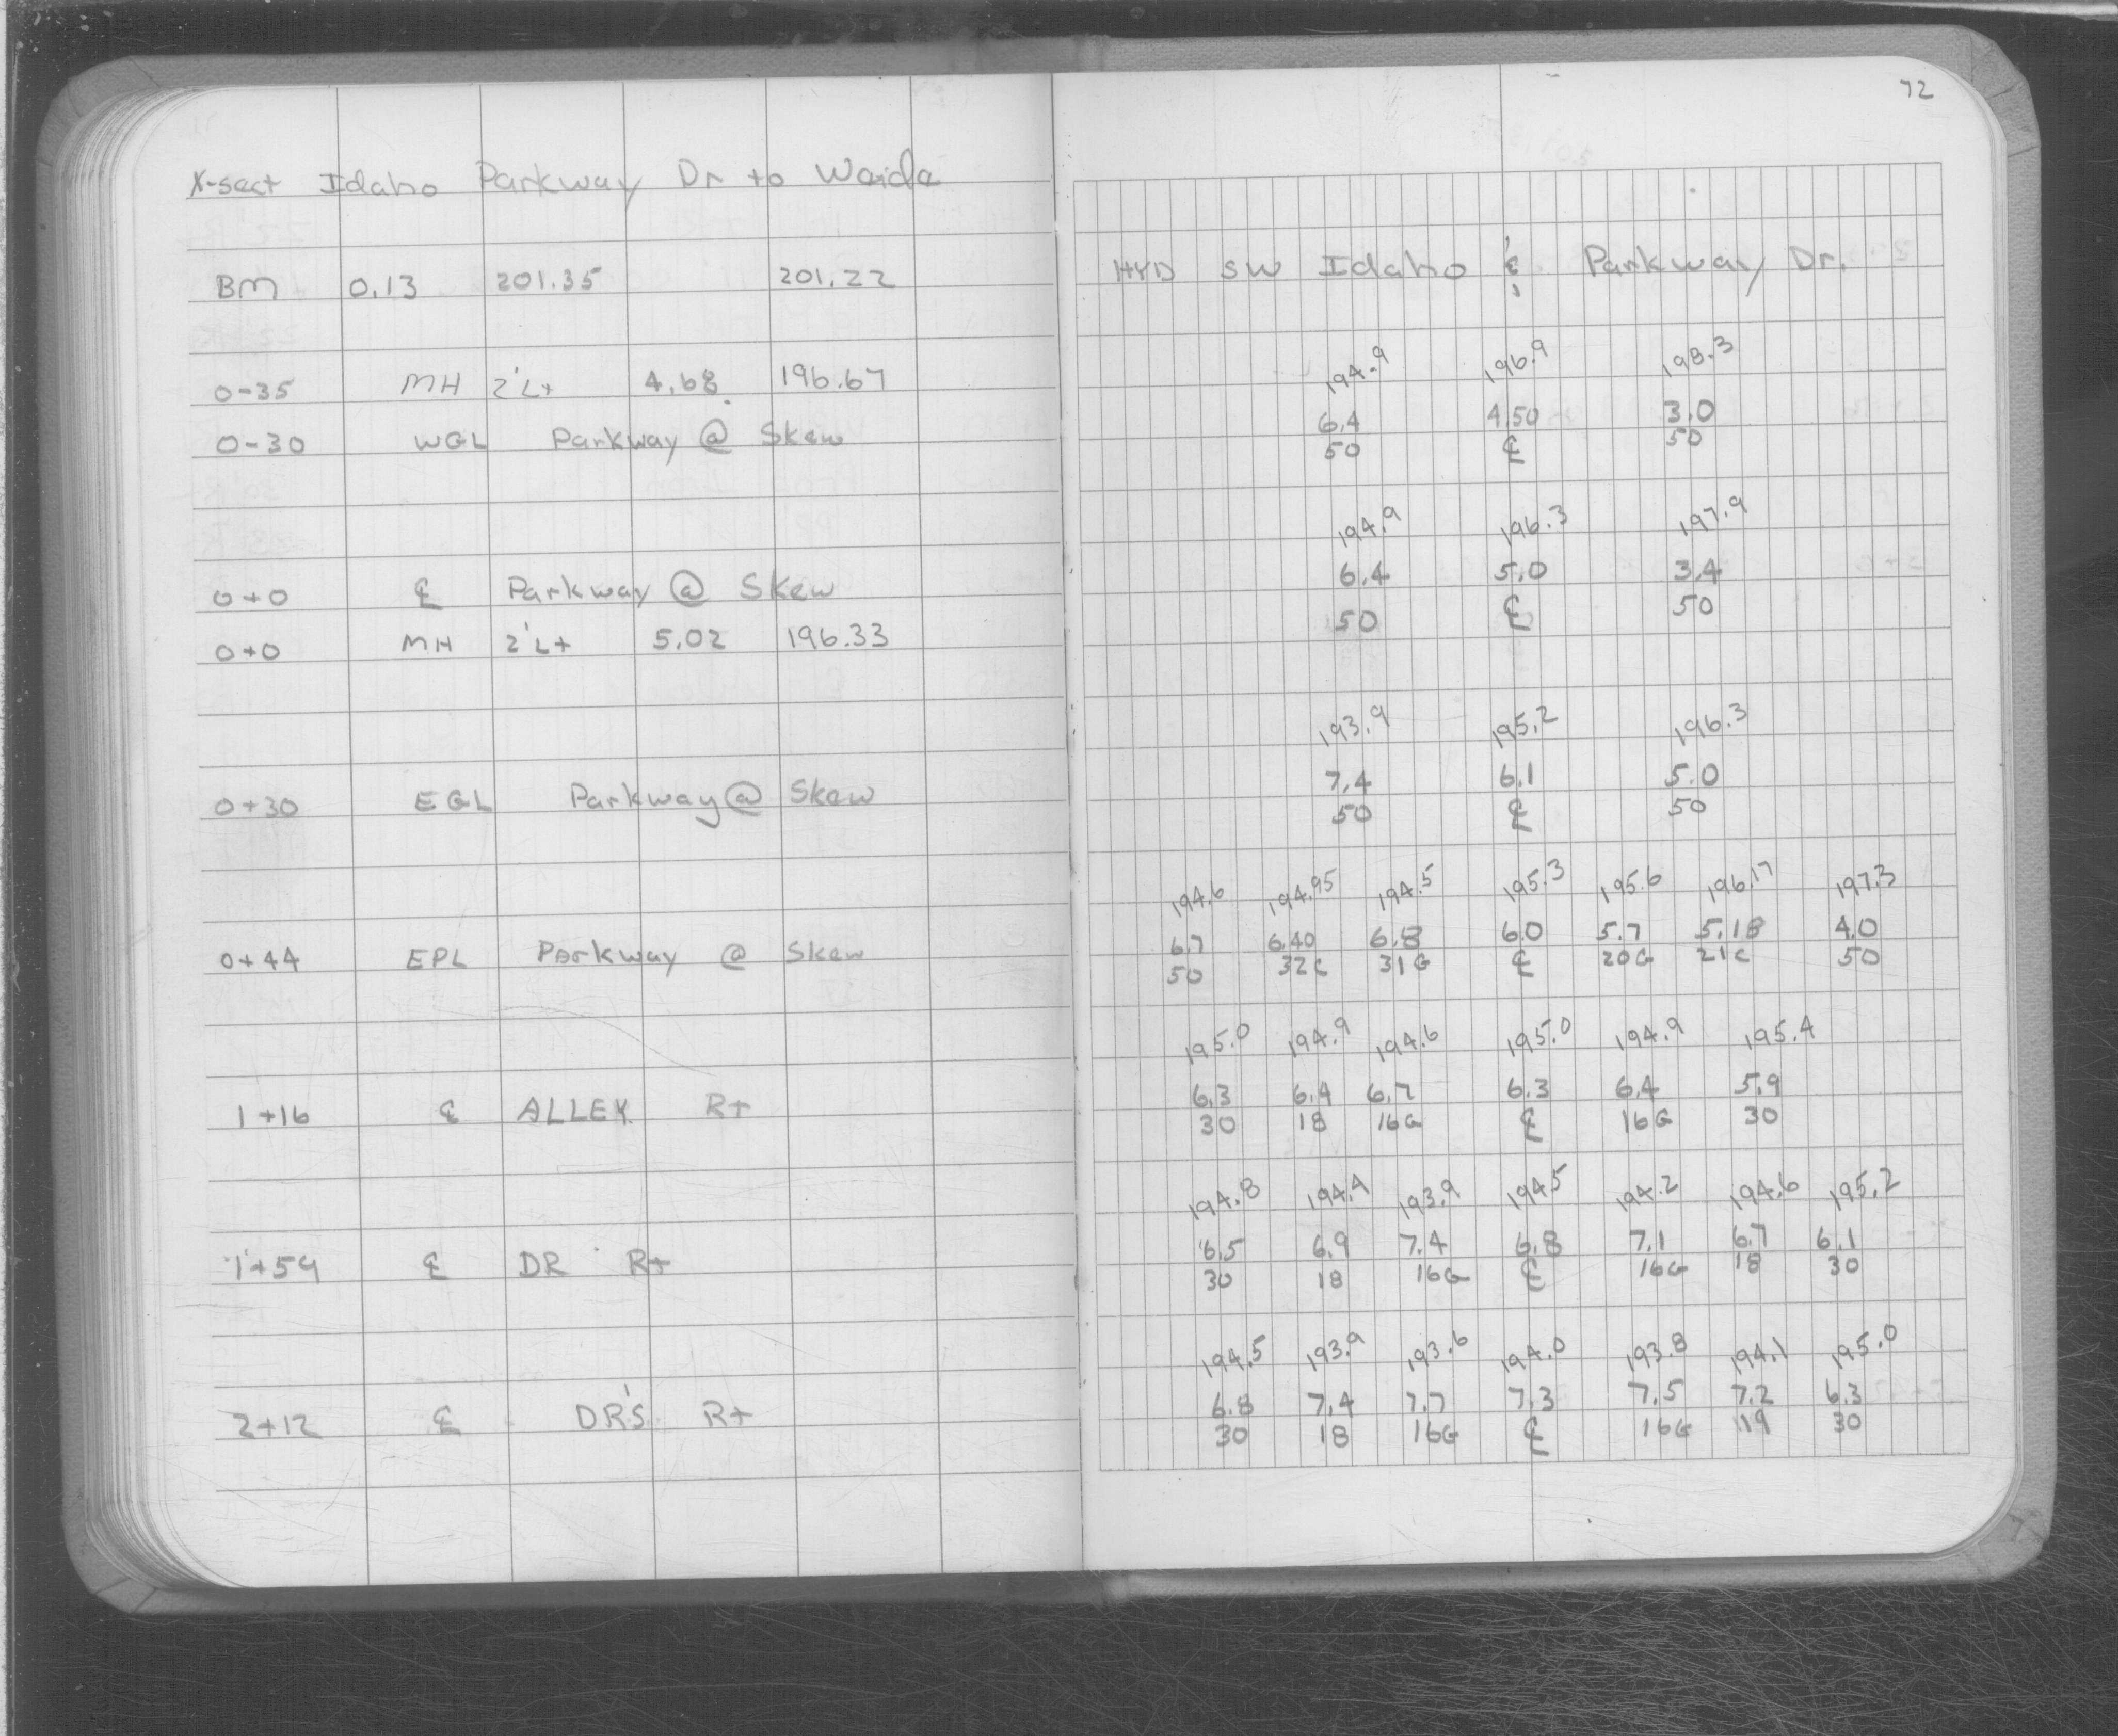 72
X-sect Idaho Parkway Dr to Waida
BM 0.13 201.35 201.22
HYD SW Idaho & Parkway Dr.
194.9 196.9 198.3
0-35 MH 2'Lt 4.68 196.67
6.4 4.50 3.0
0-30 WGL Parkway @ Skew
50 ℄ 50
194.9 196.3 197.9
6.4 5.0 3.4
0+0 ℄ Parkway @ Skew
50 ℄ 50
0+0 MH 2'Lt 5.02 196.33
193.9 195.2 196.3
7.4 6.1 5.0
0+30 EGL Parkway @ Skew
50 ℄ 50
194.6 194.95 194.5 195.3 195.6 196.17 197.3
6.7 6.40 6.8 6.0 5.7 5.18 4.0
0+44 EPL Parkway @ Skew
50 32C 31G ℄ 20G 21C 50
195.0 194.9 194.6 195.0 194.9 195.4
6.3 6.4 6.7 6.3 6.4 5.9
1+16 ℄ ALLEY Rt
30 18 16G ℄ 16G 30
194.8 194.4 193.9 194.5 194.2 194.6 195.2
6.5 6.9 7.4 6.8 7.1 6.7 6.1
1+59 ℄ DR Rt
30 18 16G ℄ 16G 18 30
194.5 193.9 193.6 194.0 193.8 194.1 195.0
6.8 7.4 7.7 7.3 7.5 7.2 6.3
2+12 ℄ DR'S Rt
30 18 16G ℄ 16G 19 30